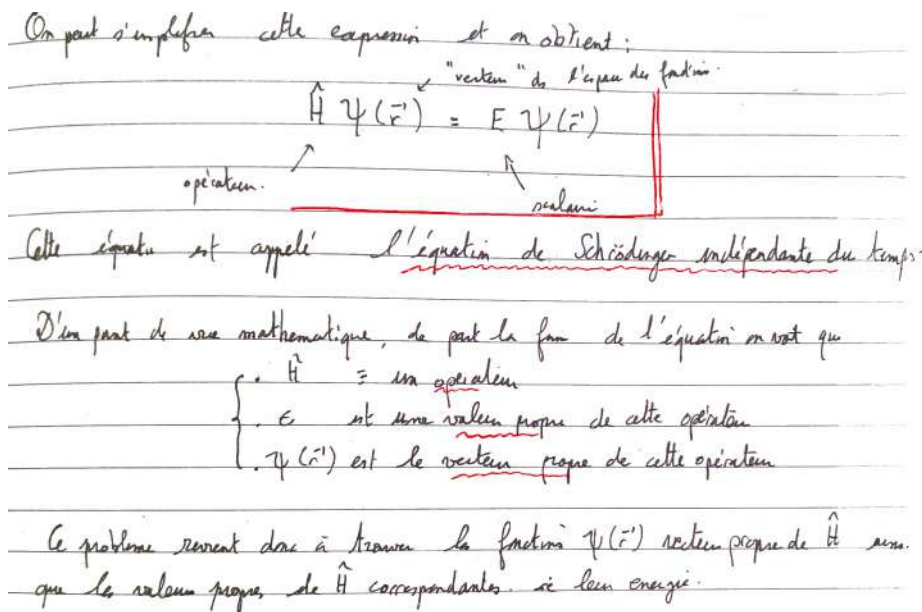 On peut simplifier cette expression et on obtient :
"vecteur" de l'espace des fonctions.
Ĥ Ψ(r⃗) = E Ψ(r⃗)
opérateur.
scalaire
Cette équatⁿ est appelé l'équation de Schrödinger indépendante du temps.
D'un point de vue mathématique, de part la forme de l'équation on voit que
. Ĥ ≡ un opérateur
. E est une valeur propre de cette opérateur
. Ψ(r⃗) est le vecteur propre de cette opérateur
Ce problème revient donc à trouver les fonctions Ψ(r⃗) vecteur propre de Ĥ ainsi
que les valeurs propres de Ĥ correspondantes. ie leur energie.